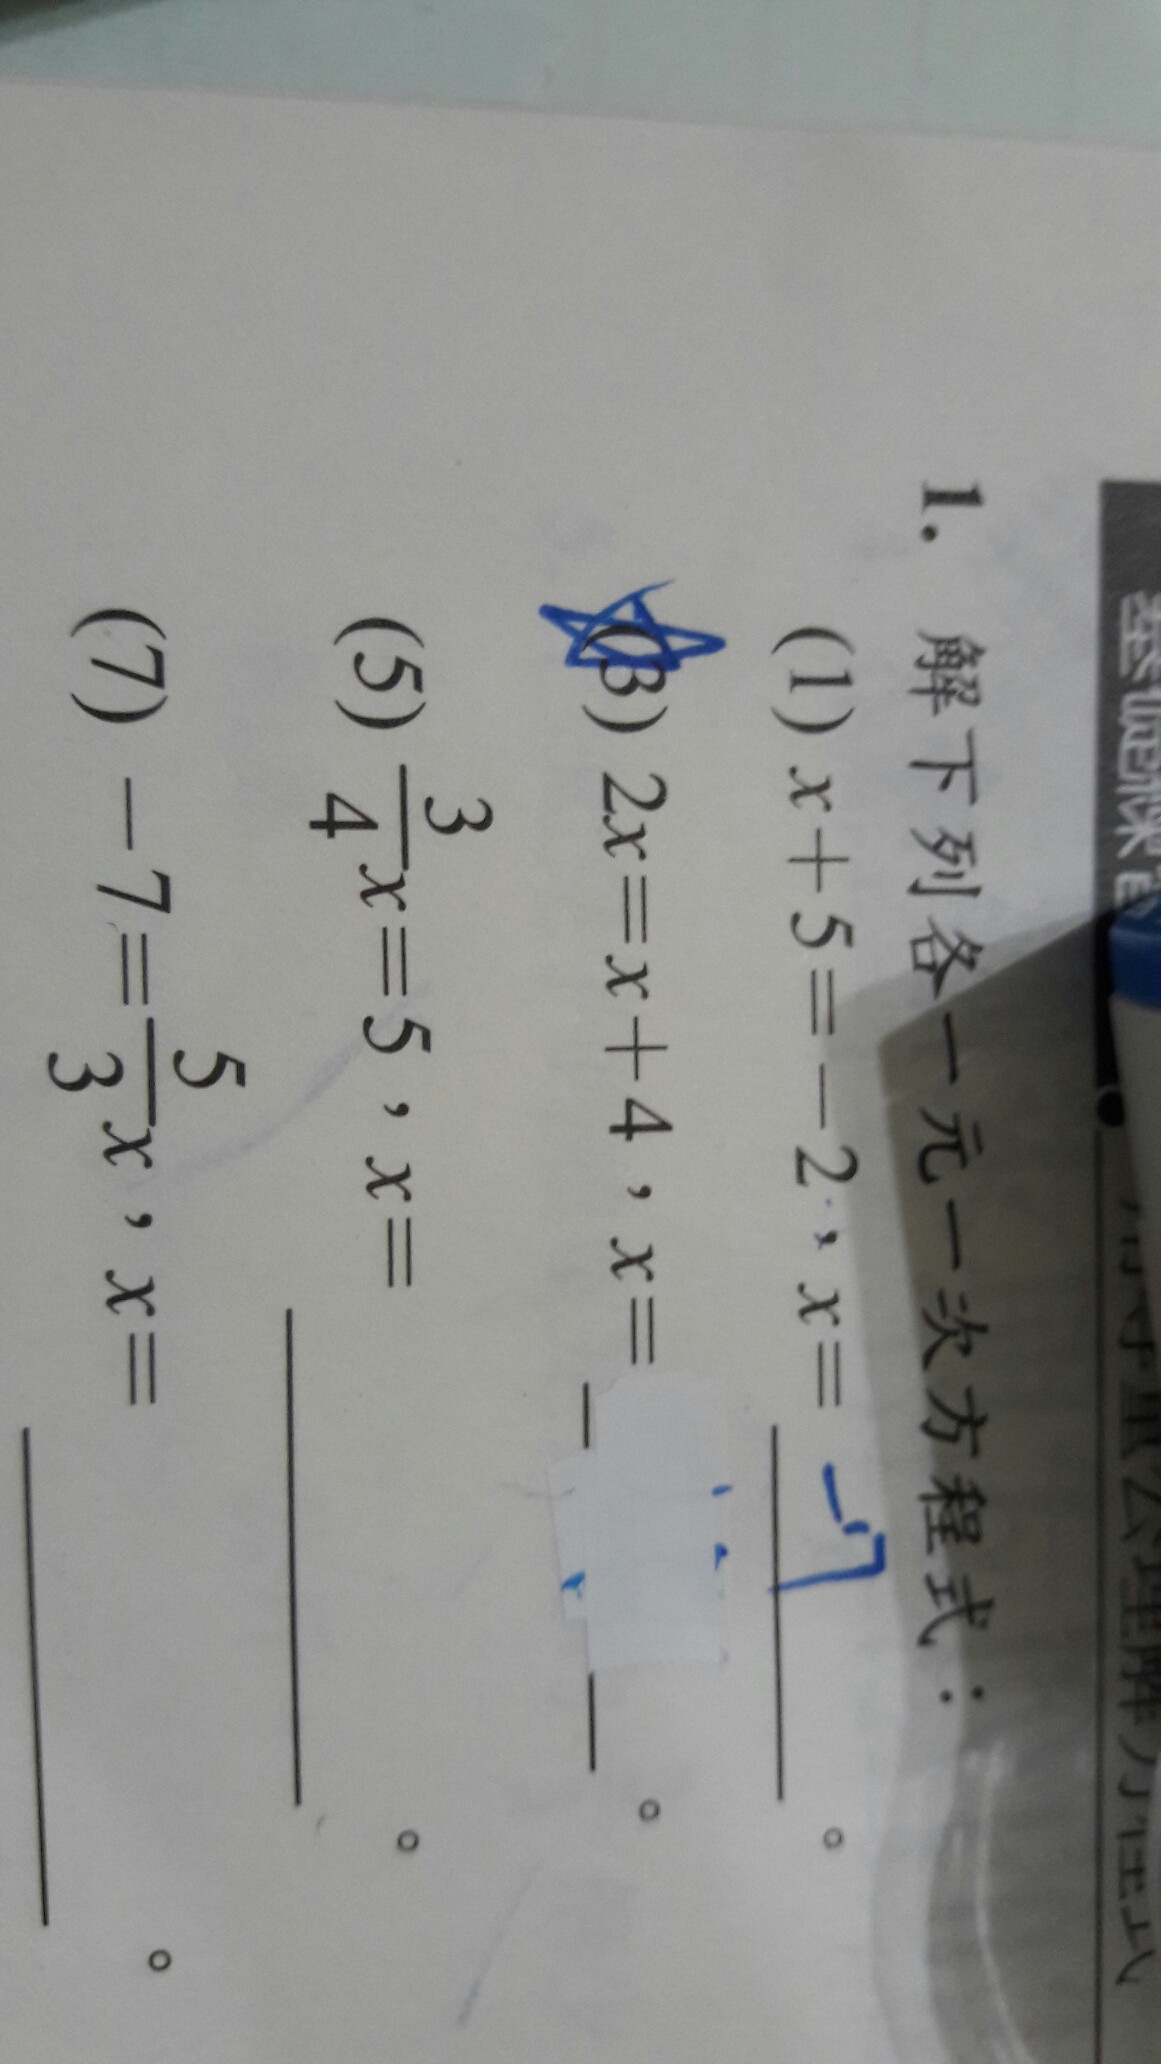 1. 解下列各一元一次方程式：
(1) x+5=-2，x= -7 。
(3) 2x=x+4，x= 。
(5) 3/4x=5，x= 。
(7) -7=5/3x，x= 。